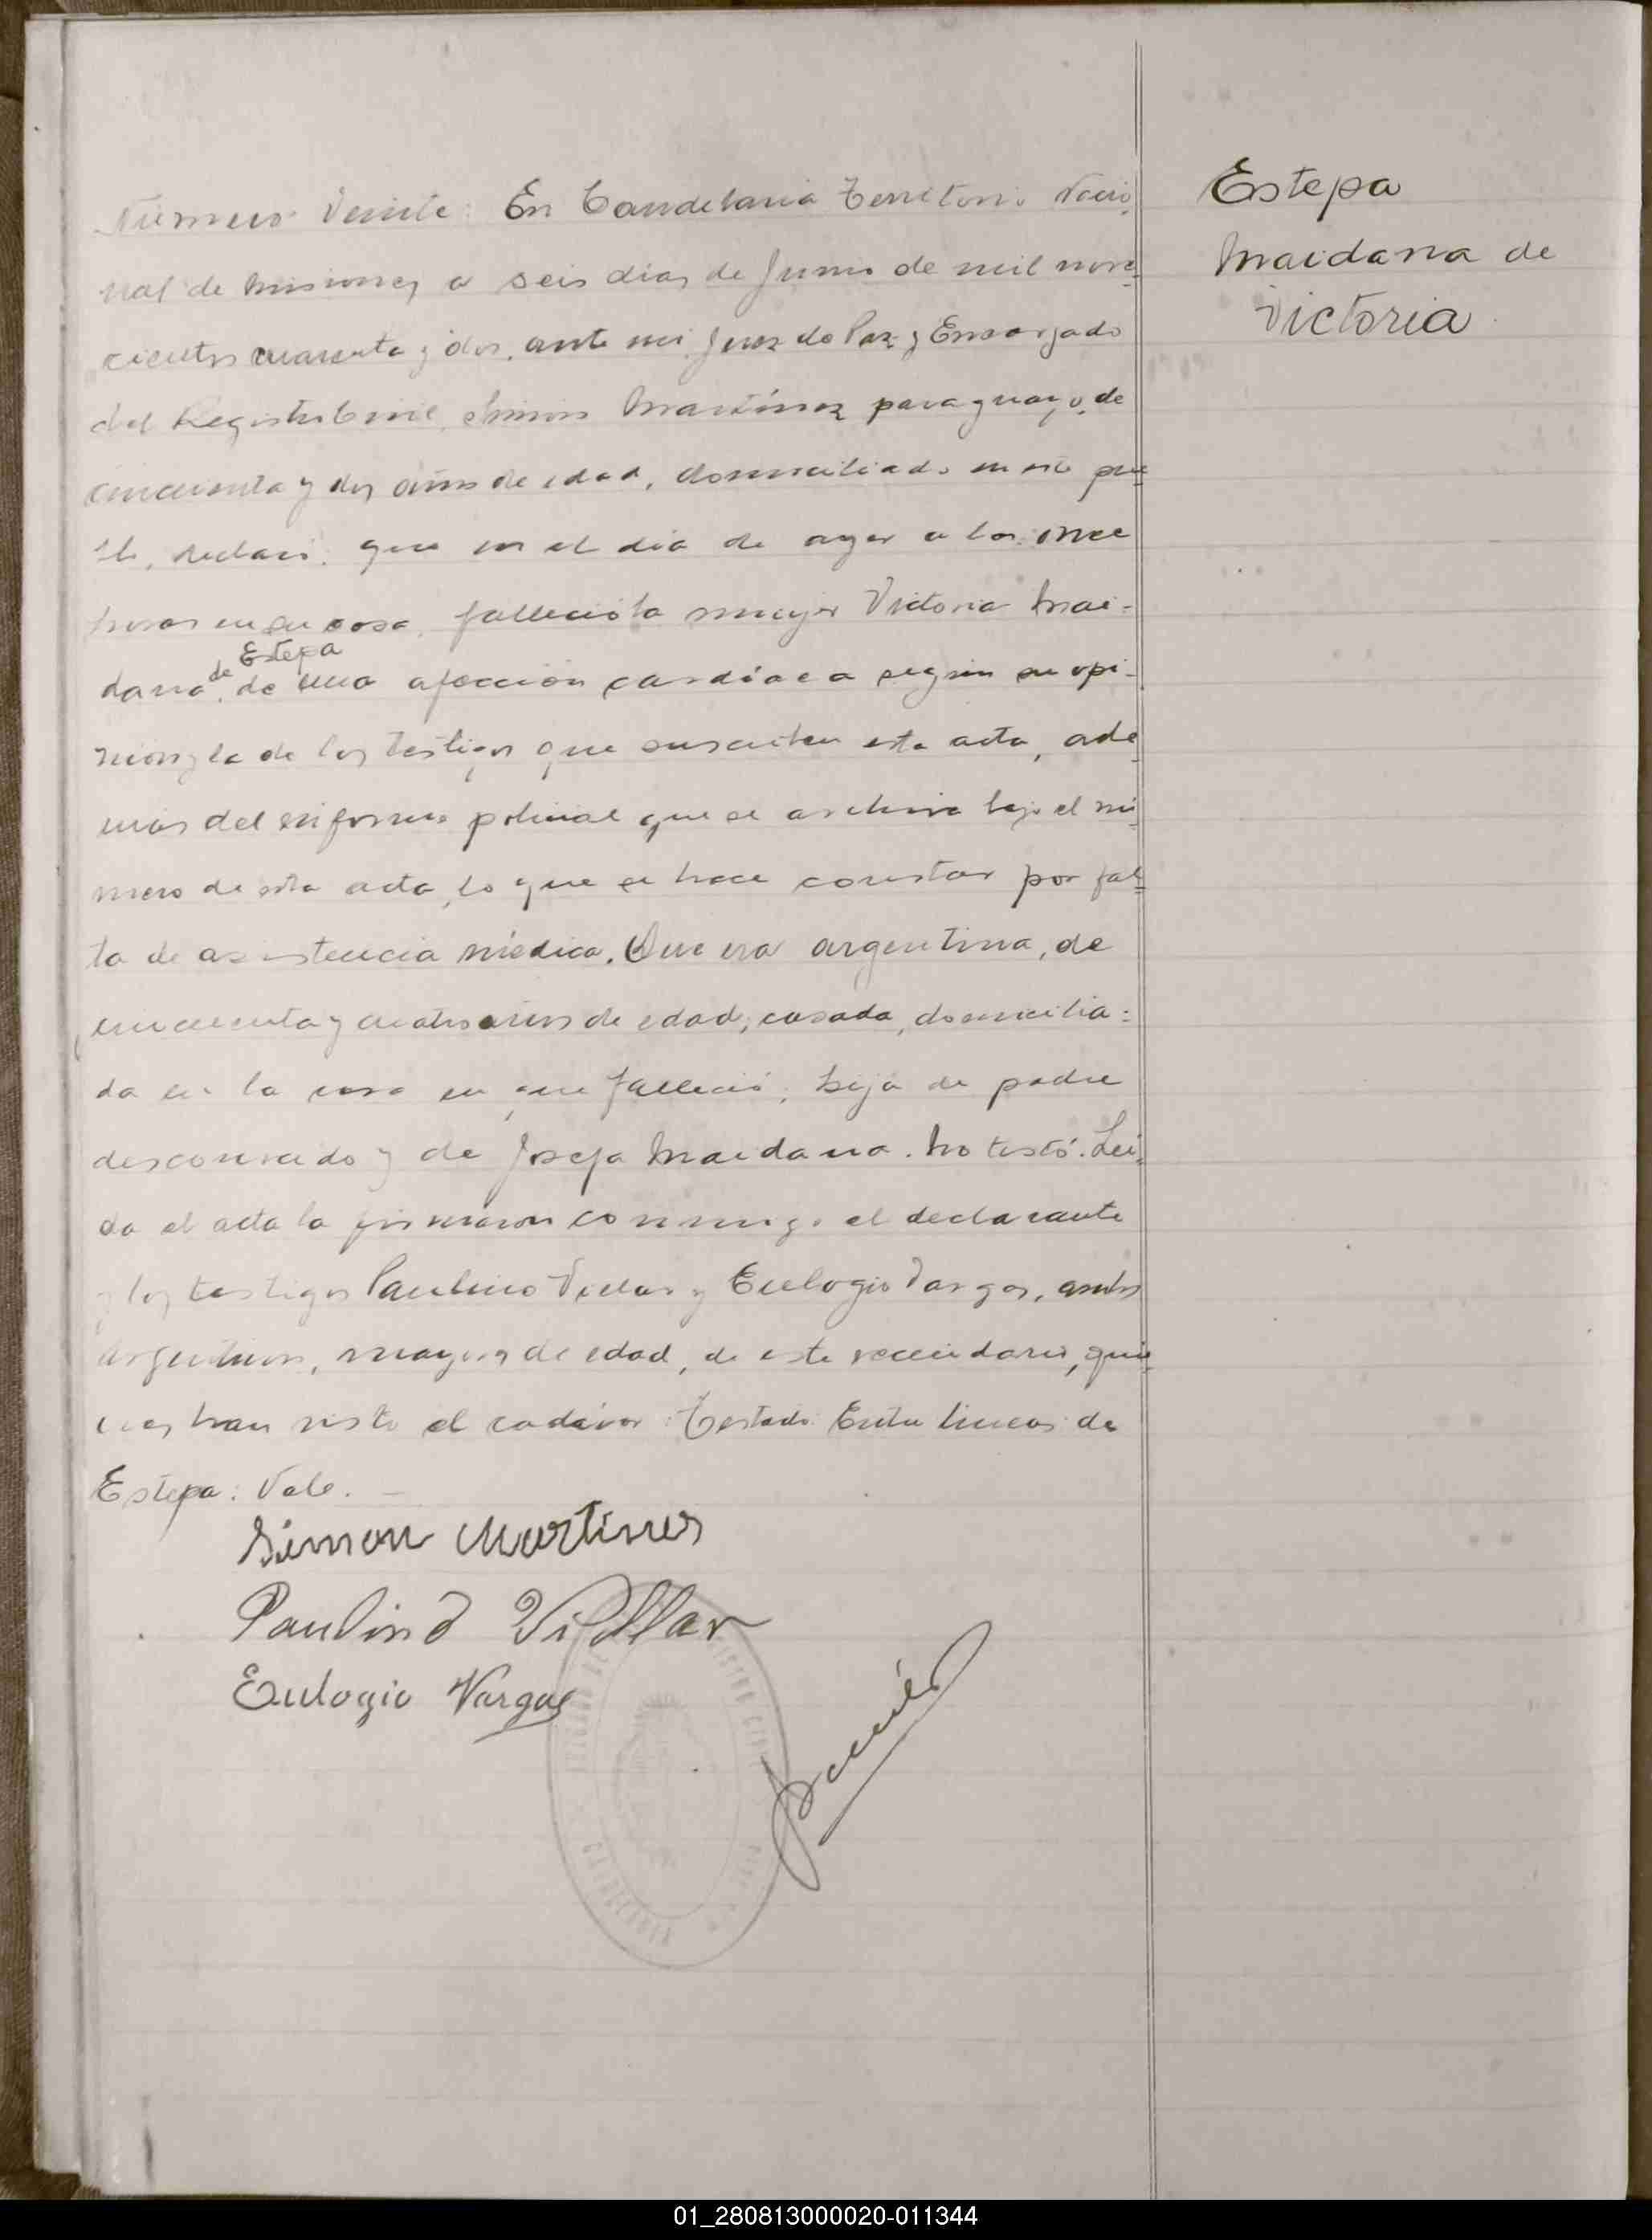 Número Veinte: En Candelaria Territorio Nacio
nal de Misiones a seis dias de Junio de mil nove
cientos cuarenta y dos, ante mi Juez de Paz y Encargado
del Registro Civil, Simón Martínez paraguayo, de
cincuenta y dos años de edad, domiciliado en este pue
blo, declaró: que en el dia de ayer a las once
horas en su casa, falleció la mujer Victoria Mai-
de Estepa
dana, de una afección cardíaca según su opi-
nion y la de los testigos que suscriben esta acta, ade
mas del informe policial que se archiva bajo el nú
mero de esta acta, lo que se hace constar por fal
ta de asistencia médica. Que era argentina, de
cincuenta y cuatro años de edad, casada, domicilia-
da en la casa en que falleció; hija de padre
desconocido y de Josefa Maidana. No testó. Lei
da el acta la firmaron conmigo el declarante
y los testigos Paulino Villar y Eulogio Vargas, ambos
argentinos, mayores de edad, de este vecindario, quie
nes han visto el cadáver. Testado: Entre lineas: de
Estepa: Vale. —
Simon Martines
Paulino Villar
Eulogio Vargas
Estepa
Maidana de
Victoria
01_280813000020-011344